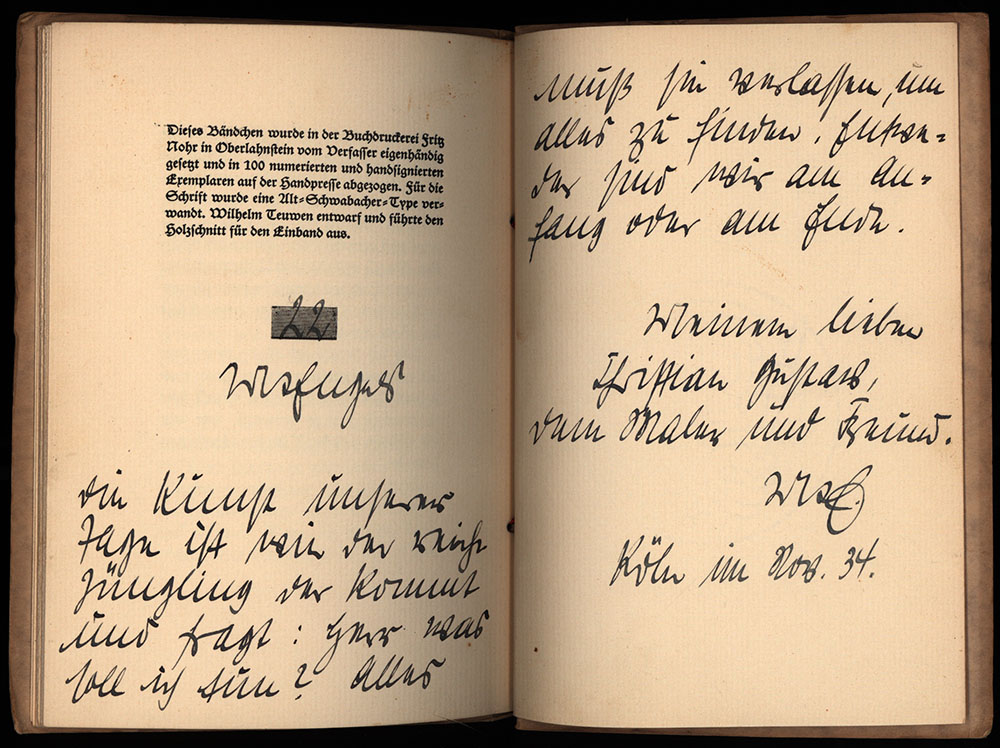 Dieses Bändchen wurde in der Buchdruckerei Fritz
Nohr in Oberlahnstein vom Verfasser eigenhändig
gesetzt und in 100 numerierten und handsignierten
Exemplaren auf der Handpresse abgezogen. Für die
Schrift wurde eine Alt-Schwabacher-Type ver-
wandt. Wilhelm Teuwen entwarf und führte den
Holzschnitt für den Einband aus.
22
die Kunst unserer
Tage ist wie der reiche
Jüngling der kommt
und fragt: Herr was
soll ich tun? Alles
muß sie verlassen, um
alles zu finden. Entwe-
der sind wir am An-
fang oder am Ende.
Meinem lieben
Christian Gustav,
dem Maler und Freund.
Köln im Nov. 34.